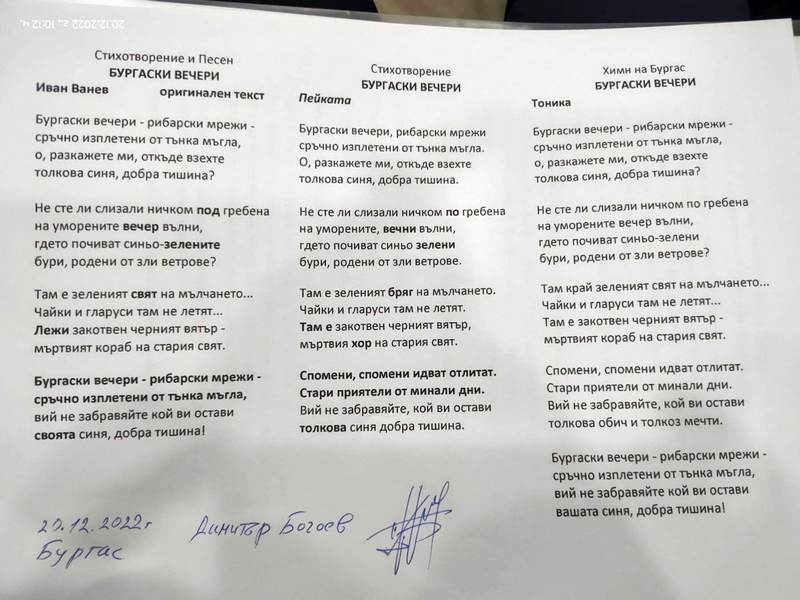 20.12.2022 г., 10:12 ч.
Стихотворение и Песен
БУРГАСКИ ВЕЧЕРИ
Иван Ванев оригинален текст
Бургаски вечери - рибарски мрежи -
сръчно изплетени от тънка мъгла,
о, разкажете ми, откъде взехте
толкова синя, добра тишина?
Не сте ли слизали ничком под гребена
на уморените вечер вълни,
гдето почиват синьо-зелените
бури, родени от зли ветрове?
Там е зеленият свят на мълчането...
Чайки и гларуси там не летят...
Лежи закотвен черният вятър -
мъртвият кораб на стария свят.
Бургаски вечери - рибарски мрежи -
сръчно изплетени от тънка мъгла,
вий не забравяйте, кой ви остави
своята синя, добра тишина!
Стихотворение
БУРГАСКИ ВЕЧЕРИ
Пейката
Бургаски вечери, рибарски мрежи
сръчно изплетени от тънка мъгла.
О, разкажете ми, откъде взехте
толкова синя, добра тишина.
Не сте ли слизали ничком по гребена
на уморените, вечни вълни,
гдето почиват синьо зелени
бури, родени от зли ветрове.
Там е зеленият бряг на мълчането.
Чайки и гларуси там не летят.
Там е закотвен черният вятър,
мъртвия хор на стария свят.
Спомени, спомени идват отлитат.
Стари приятели от минали дни.
Вий не забравяйте, кой ви остави
толкова синя добра тишина.
Химн на Бургас
БУРГАСКИ ВЕЧЕРИ
Тоника
Бургаски вечери - рибарски мрежи -
сръчно изплетени от тънка мъгла,
о, разкажете ми, откъде взехте
толкова синя, добра тишина?
Не сте ли слизали ничком по гребена
на уморените вечер вълни,
гдето почиват синьо-зелени
бури, родени от зли ветрове?
Там край зеленият свят на мълчането...
Чайки и гларуси там не летят...
Там е закотвен черният вятър -
мъртвият кораб на стария свят.
Спомени, спомени идват отлитат.
Стари приятели от минали дни.
Вий не забравяйте, кой ви остави
толкова обич и толкоз мечти.
Бургаски вечери - рибарски мрежи -
сръчно изплетени от тънка мъгла,
вий не забравяйте кой ви остави
вашата синя, добра тишина!
20.12.2022 г
Бургас
Димитър Богоев